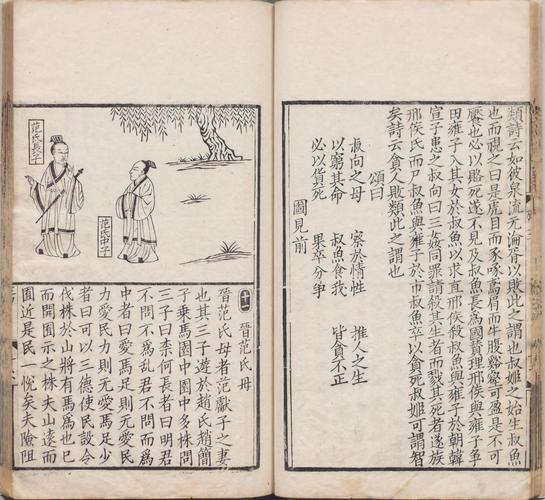 類詩云如彼泉流无淪胥以敗此之謂也叔姬之始生叔魚
也而視之曰是虎目而豕啄鳶肩而牛腹谿壑可盈是不可
饜也必以賂死遂不見及叔魚長為國賛理邢侯與雍子爭
田雍子入其女於叔魚以求直邢侯殺叔魚與雍子於朝韓
宣子患之叔向曰三姦同罪請殺其生者而戮其死者遂族
邢侯氏而尸叔魚與雍子於市叔魚卒以貪死叔姬可謂智
矣詩云貪人敗類此之謂也
頌曰
叔向之母 察於情性 推人之生
以窮其命 叔魚食我 皆貪不正
必以貨死 果卒分爭
圖見前
范氏中子
范氏長子
十一 晉范氏母
晉范氏母者范獻子之妻
也其三子遊於趙氏趙簡
子乘馬園中園中多株問
三子曰柰何長者曰明君
不問不為亂君不問而為
中者曰愛馬足則无愛民
力愛民力則无愛馬足少
者曰可以三德使民設令
伐株於山將有馬為也已
而開囿示之株夫山遠而
囿近是民一悅矣夫險阻